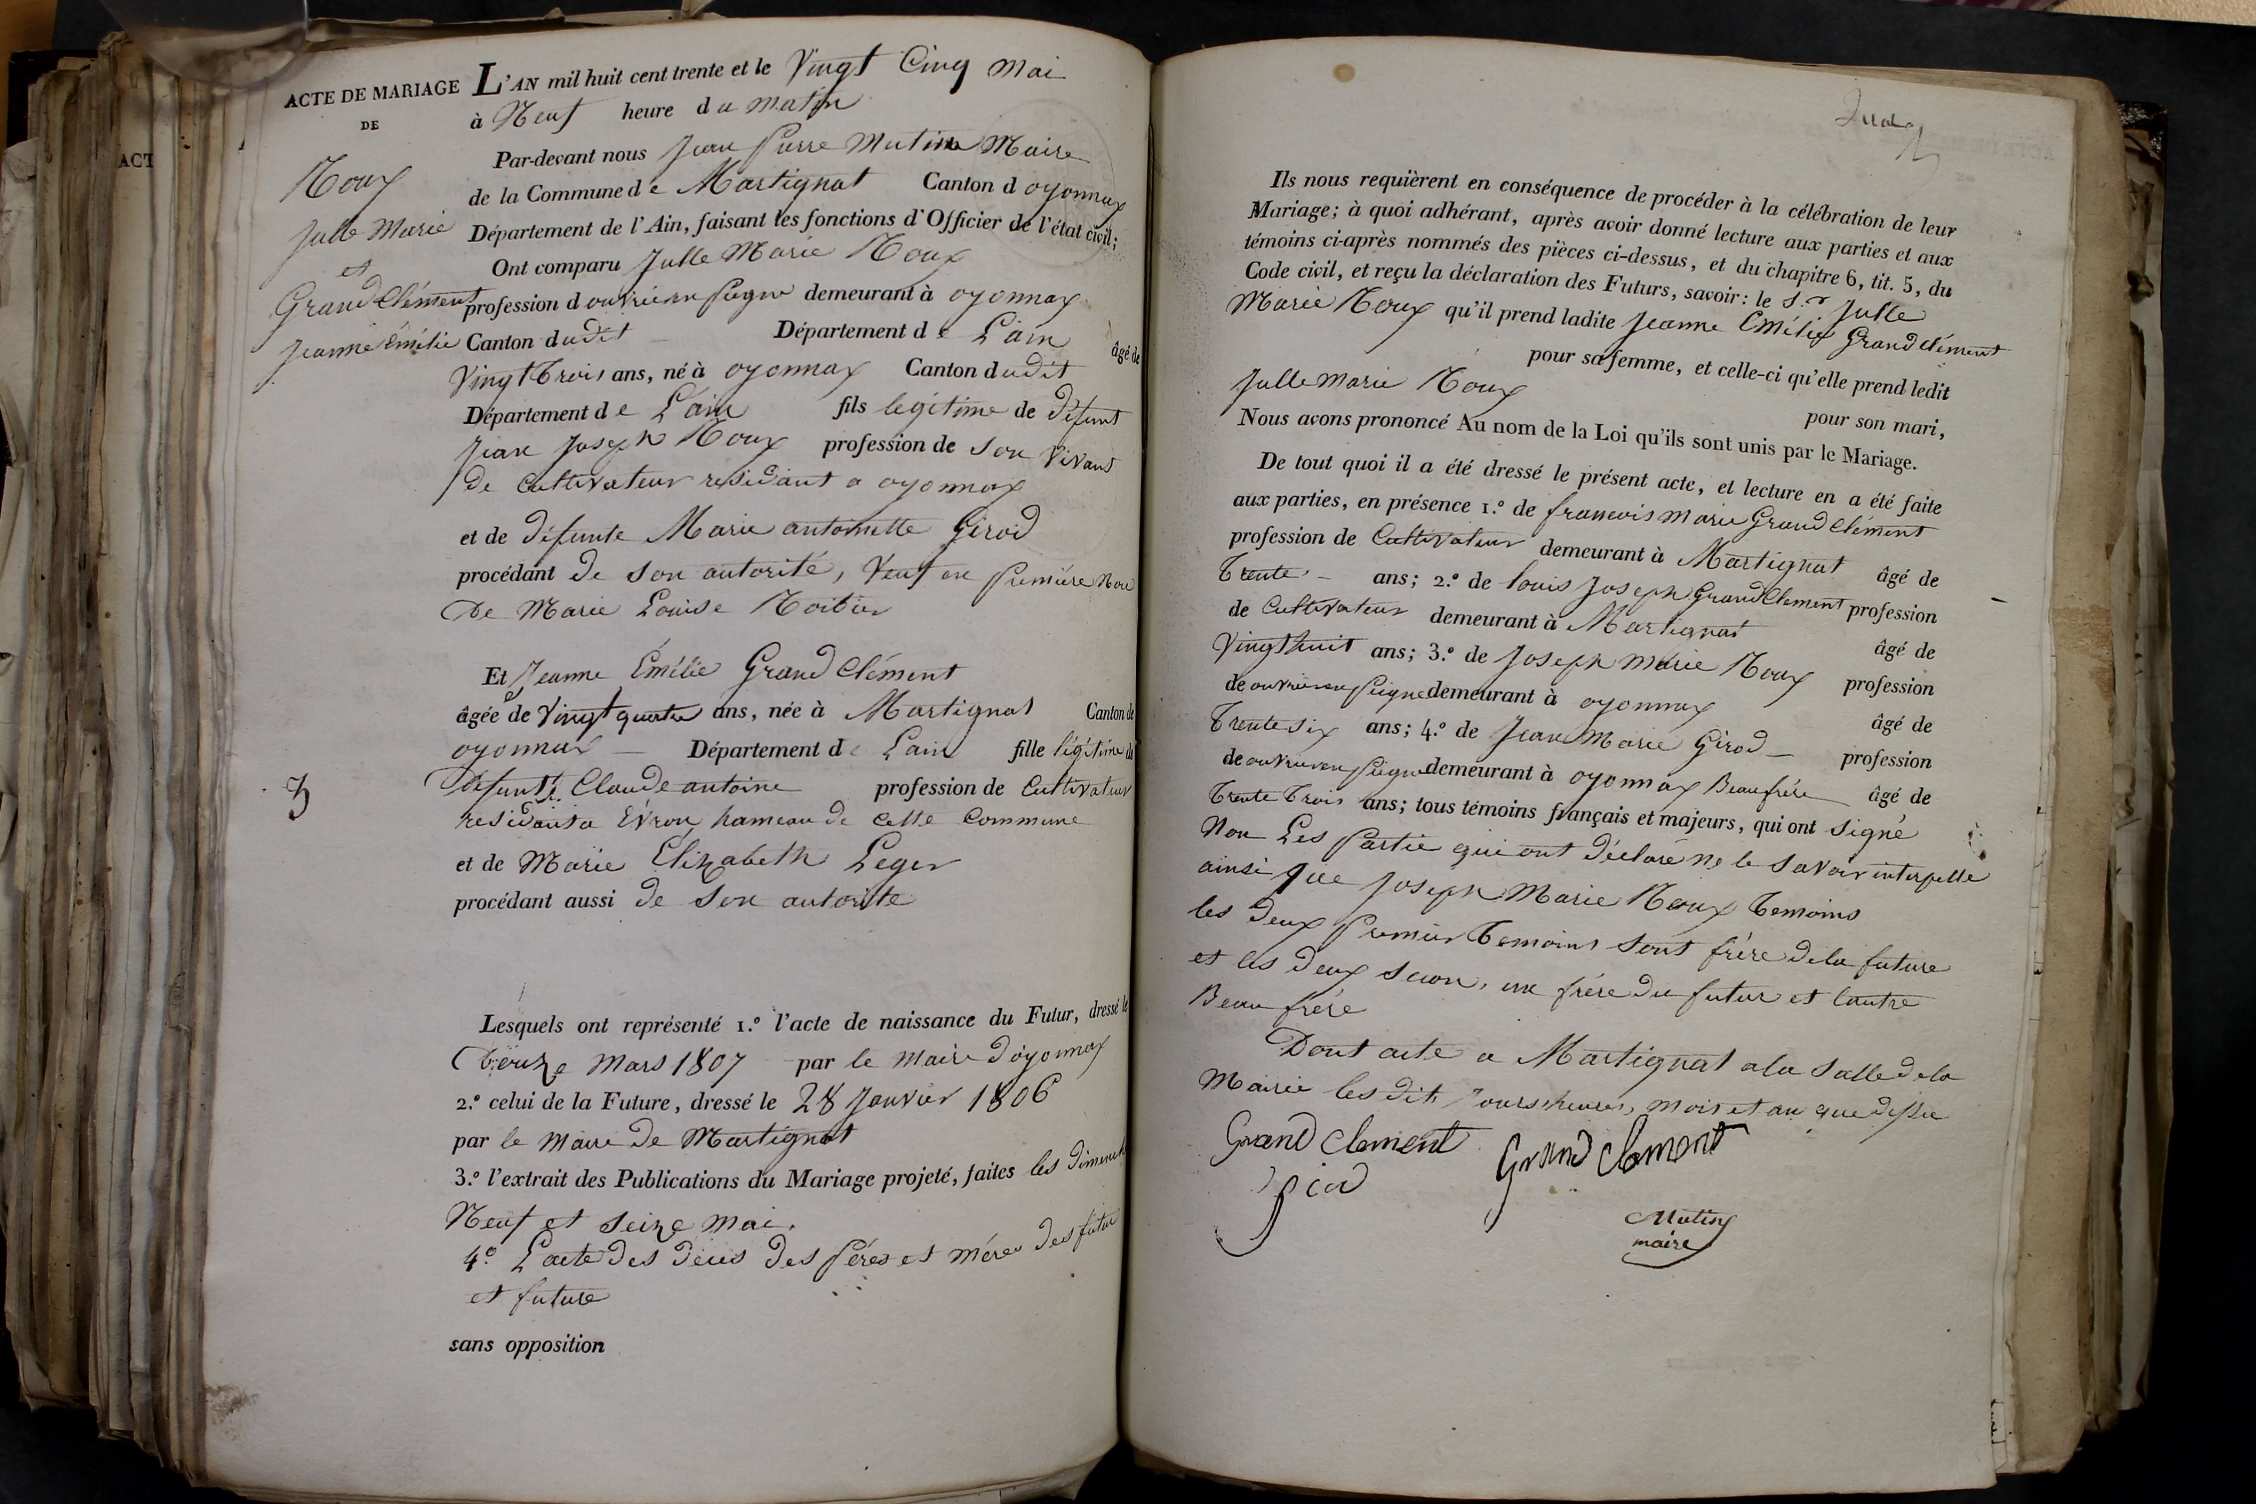 ACT
ACTE DE MARIAGE
DE
Roux
Julle Marie
et
Grand Clément
Jeanne Émélie
3
L'AN mil huit cent trente et le Vingt Cinq mai
à Neuf heure du matin
Par-devant nous Jean Pierre Mutin Maire
de la Commune de Martignat Canton d oyonnax
Département de l'Ain, faisant les fonctions d'Officier de l'état civil;
Ont comparu Julle Marie Roux
profession d ouvrier en peigne demeurant à oyonnax
Canton dudit Département de L'ain âgé de
Vingt Trois ans, né à oyonnax Canton dudit
Département de L'ain fils legitime de défunt
Jean Joseph Roux profession de son vivant
de cultivateur residant a oyonnax
et de défunte Marie antoinette Girod
procédant de son autorité, Veuf en première Noce
De Marie Louise
Et Jeanne Émélie Grand Clément
âgée de Vingt quatre ans, née à Martignat Canton de
oyonnax Département de L'ain fille légitime de
Défunt Claude antoine profession de Cultivateur
residant a Évron hameau de Cette Commune
et de Marie Elizabeth Leger
procédant aussi de Son autorite
Lesquels ont représenté 1.º l'acte de naissance du Futur, dressé le
mars 1807 par le maire d'oyonnax
2.º celui de la Future, dressé le 28 Janvier 1806
par le maire de Martignat
3.º l'extrait des Publications du Mariage projeté, faites les dimenche
Neuf et seize mai.
4.º L'acte des décès des Pères et mères des futur
et future
sans opposition
Ils nous requièrent en conséquence de procéder à la célébration de leur
Mariage; à quoi adhérant, après avoir donné lecture aux parties et aux
témoins ci-après nommés des pièces ci-dessus, et du chapitre 6, tit. 5, du
Code civil, et reçu la déclaration des Futurs, savoir: le S.r Julle
Marie Roux qu'il prend ladite Jeanne Emélie Grand Clément
pour sa femme, et celle-ci qu'elle prend ledit
Julle Marie Roux pour son mari,
Nous avons prononcé Au nom de la Loi qu'ils sont unis par le Mariage.
De tout quoi il a été dressé le présent acte, et lecture en a été faite
aux parties, en présence 1.º de francois marie Grand Clément
profession de Cultivateur demeurant à Martignat âgé de
Trente ans; 2.º de louis Joseph Grand Clement profession
de Cultivateur demeurant à Martignat âgé de
Vingt huit ans; 3.º de Joseph Marie Roux profession
de ouvrier en peigne demeurant à oyonnax âgé de
Trente six ans; 4.º de Jean Marie Girod profession
de ouvrier en peigne demeurant à oyonnax Beaufrére âgé de
Trente Trois ans; tous témoins français et majeurs, qui ont signé
Non Les Partie qui ont déclaré ne le savoir interpellé
ainsi que Joseph Marie Roux Temoins
les deux premier Temoins sont frère de la future
et les deux secon, un frère du futur et lautre
Beau frère
Dont acte a Martignat a la salle de la
Mairie les dit Jours heures, mois et an que dessu
Grand Clement Grand Clement
Mutin
maire